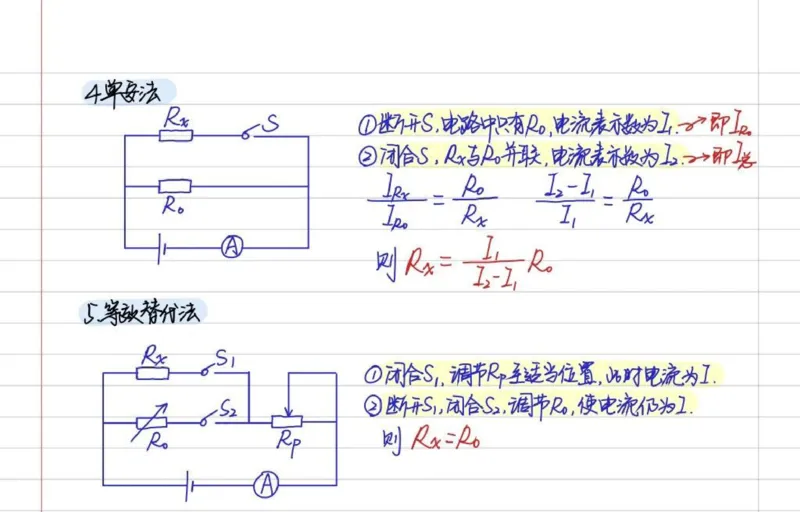 4.单安法
Rx
S
R₀
A
①断开S,电路中只有R₀,电流表示数为I₁.→即I_R₀
②闭合S,Rx与R₀并联,电流表示数为I₂.→即I总
I_Rx/I_R₀ = R₀/Rx (I₂-I₁)/I₁ = R₀/Rx
则 Rx = I₁/(I₂-I₁) R₀
5.等效替代法
Rx
S₁
S₂
R₀
Rp
A
①闭合S₁,调节Rp至适当位置,此时电流为I.
②断开S₁,闭合S₂,调节R₀,使电流仍为I.
则 Rx=R₀